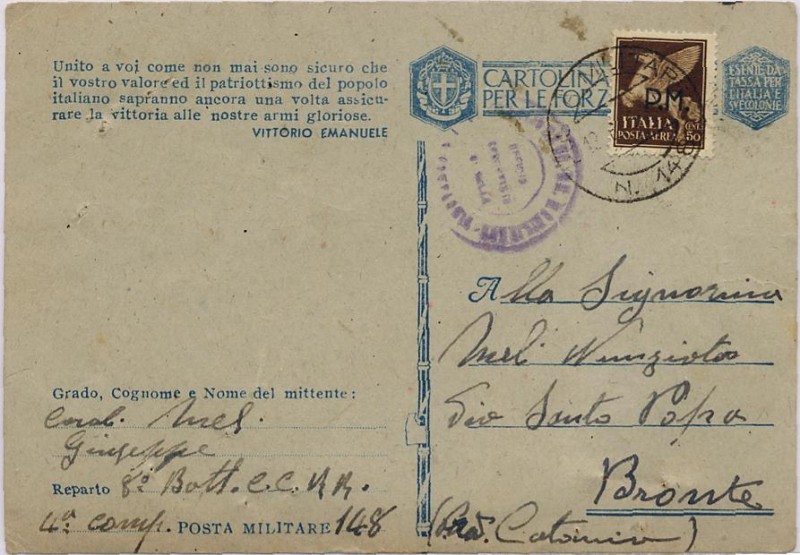 Unito a voi come non mai sono sicuro che
il vostro valore ed il patriottismo del popolo
italiano sapranno ancora una volta assicu-
rare la vittoria alle nostre armi gloriose.
VITTORIO EMANUELE
CARTOLIN
PER LE FORZ
P.M.
ITALIA
POSTA-AEREA
CENT. 50
N. 148
ESENTE DA
TASSA PER
L'ITALIA E
SUE COLONIE
Alla Signorina
Meli Nunziata
Via Santo
Bronte
(Prov. Catania)
Grado, Cognome e Nome del mittente:
Carab. Meli
Giuseppe
Reparto 8º Batt. CC. RR.
4ª comp. POSTA MILITARE 148